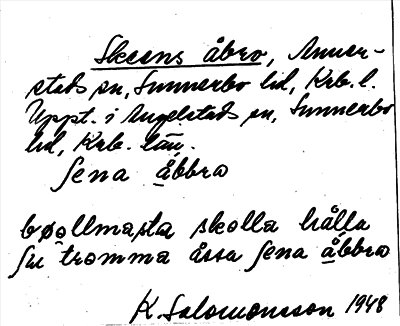 Skeens åbro, Anner-
stads sn, Sunnerbo hd, Krb. l.
Uppt. i Angelstads sn, Sunnerbo
hd, Krb. län.
ʃena åbbra
bøollmasta skolla hålla
ʃu tromma åssa ʃena åbbra
K. Salomonsson 1948